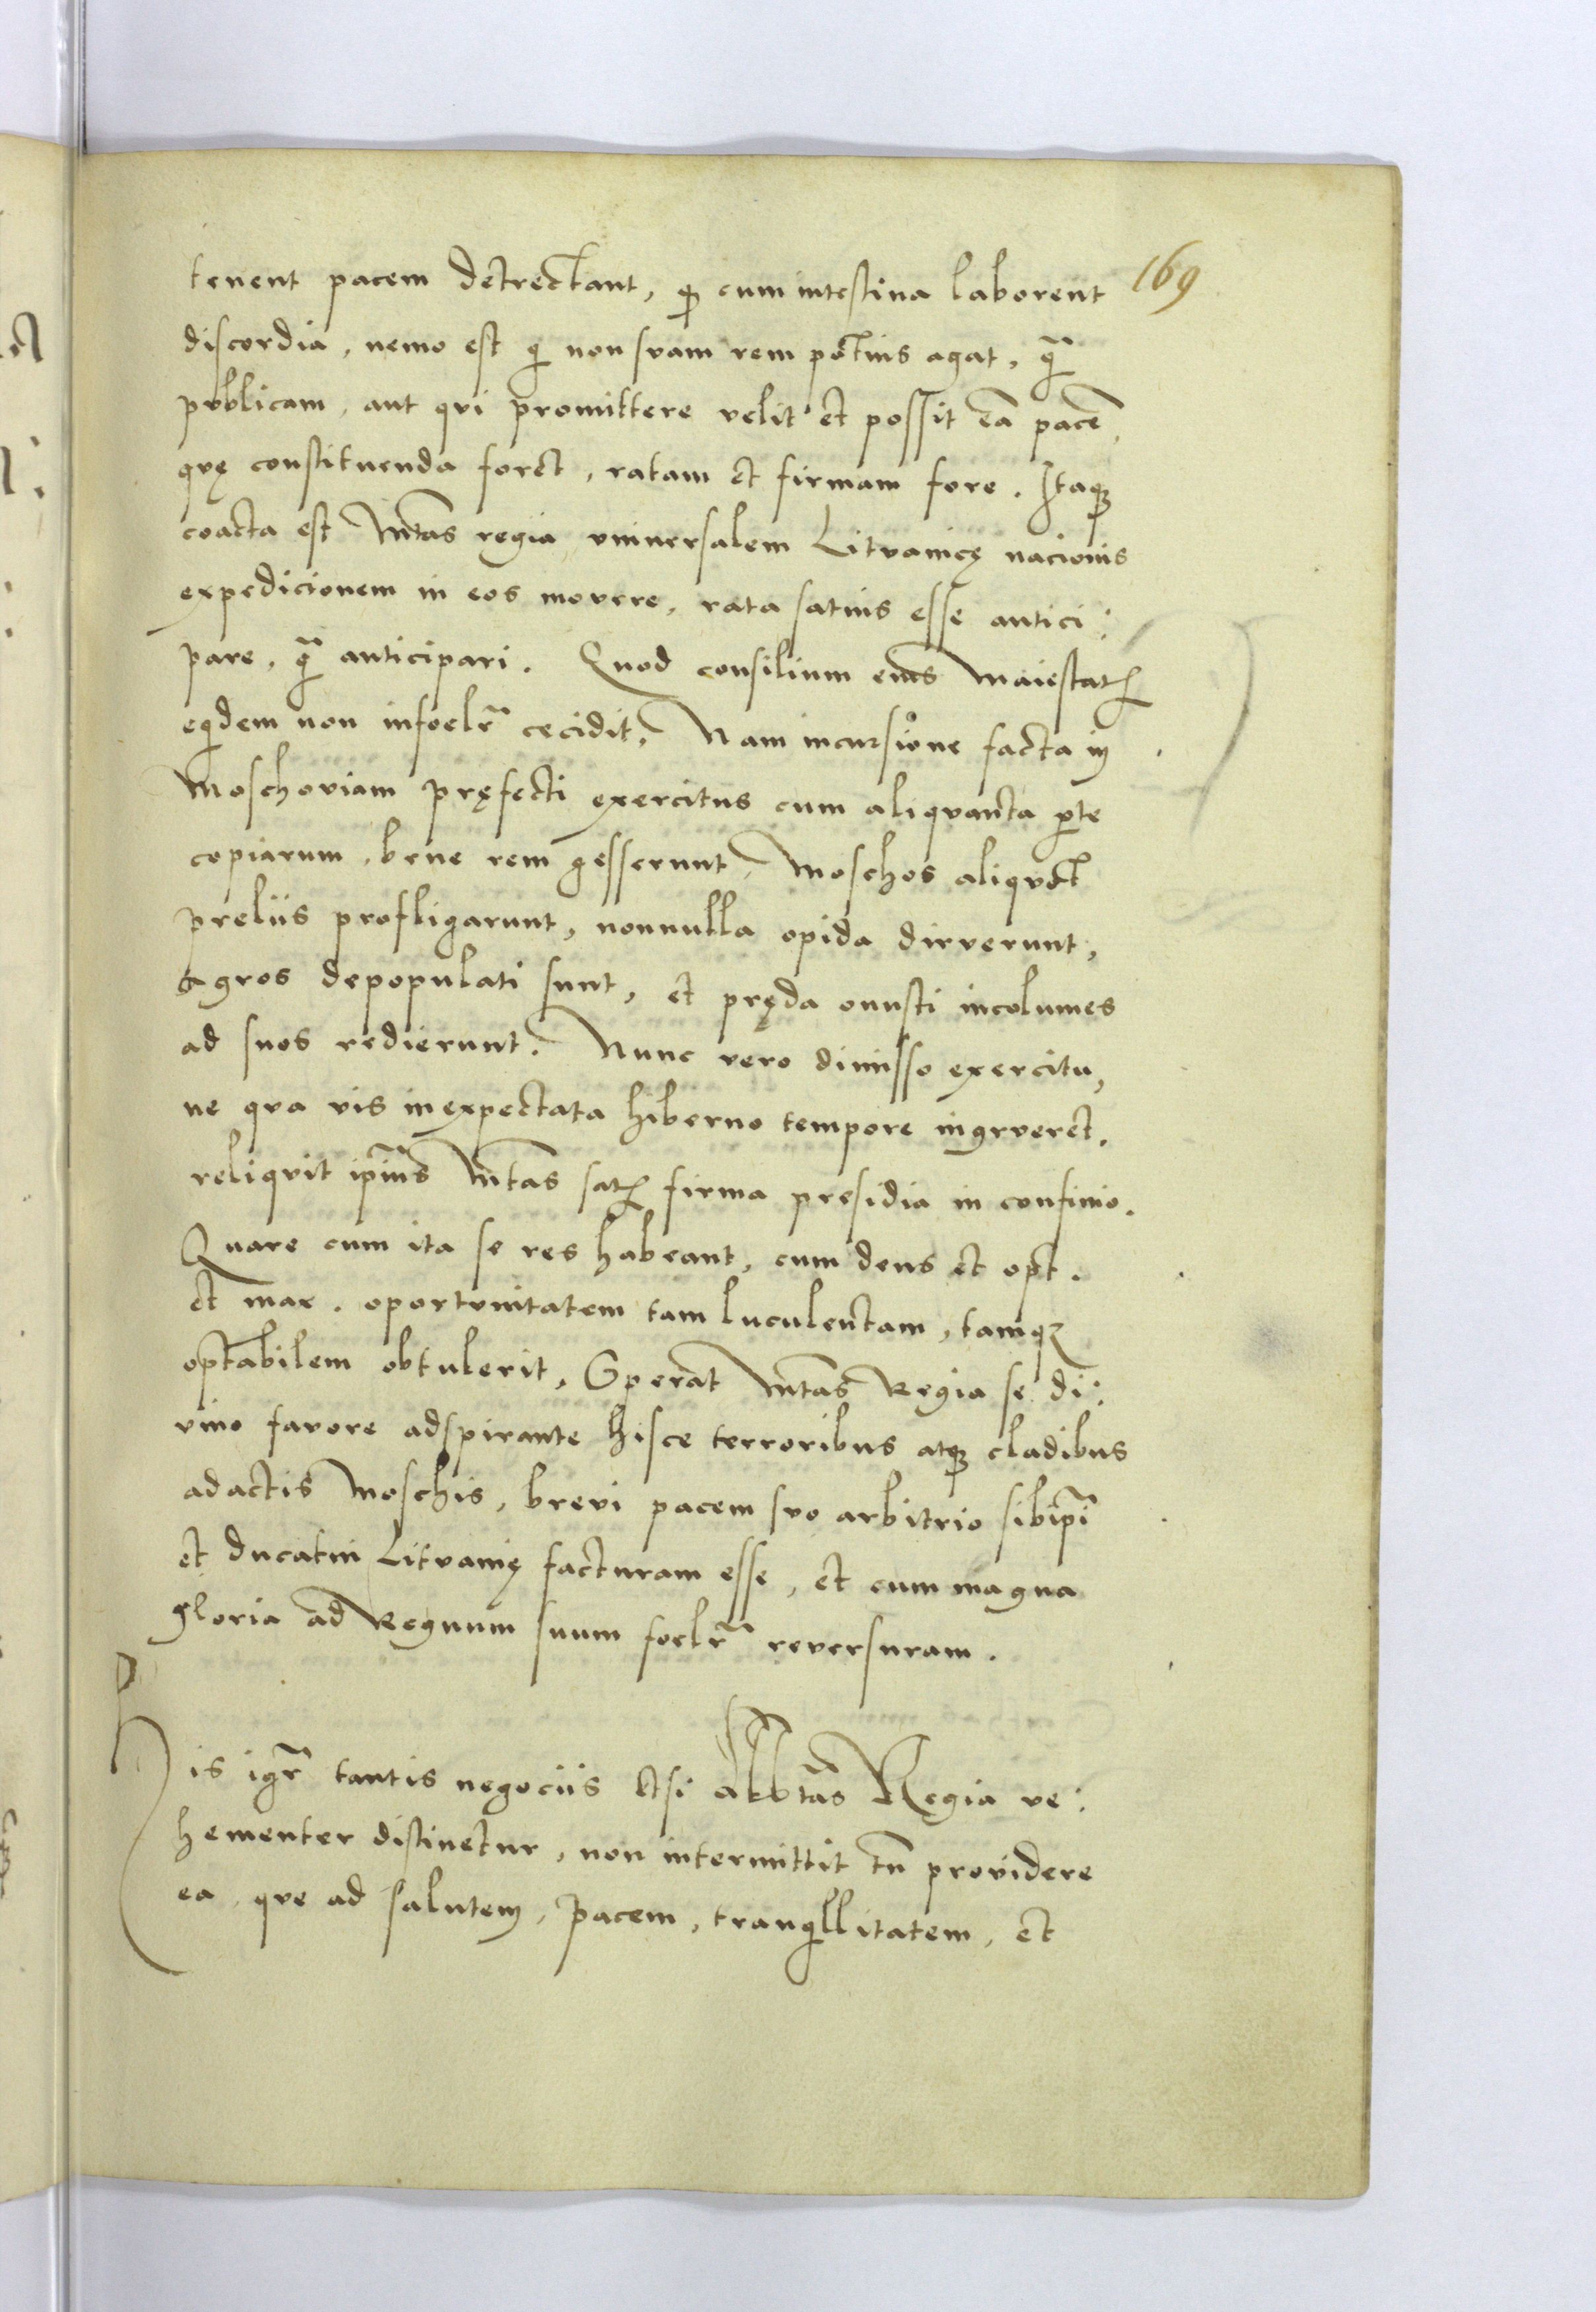 169
tenent pacem detrectant, qꝫ cum intestina laborent
discordia, nemo est q̇ non suam rem potius agat, q̃
publicam, aut qui promittere velit et possit eã pacẽ,
quę constituenda foret, ratam et firmam fore. Itaqꝫ
coacta est Mtas regia universalem Lituanicę nacionis
expedicionem in eos movere, rata satius esse antici:
pare, q̃ anticipari. Quod consilium eius Maiestatꝭ
eqdem non infoelr̃ cecidit, Nam incursione facta in
Moschoviam pręfecti exercitus cum aliquanta ꝑte
copiarum, bene rem gesserunt, Moschos aliquot
preliis profligarunt, nonnulla opida diruerunt,
agros depopulati sunt, et pręda onusti incolumes
ad suos redierunt. Nunc vero dimisso exercitu,
ne qua vis inexpectata hiberno tempore ingrueret,
reliquit ip̃ius Mtas satꝭ firma presidia in confinio.
Quare cum ita se res habeant, cum deus et opt.
et max. oportunitatem tam luculentam, tamqꝫ
optabilem obtulerit, Sperat Mtas Regia se di:
vino favore adspirante hisce terroribus atqꝫ cladibus
adactis Moschis, brevi pacem suo arbitrio sibiip̃i
et ducatui Lituanię facturam esse, et cum magna
gloria ad Regnum suum foelr̃ reversuram.
His igr̃ tantis negociis etsi Mtas Regia ve:
hementer distinetur, non intermittit tñ providere
ea, que ad salutem, pacem, tranqllitatem, et